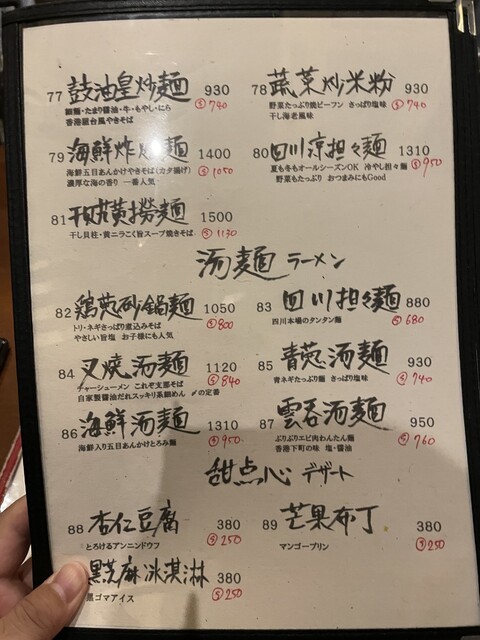 77 鼓油皇炒麺 930
細麺・たまり醤油・牛・もやし・にら Ⓢ740
香港屋台風やきそば
78 蔬菜炒米粉 930
野菜たっぷり焼ビーフン さっぱり塩味 Ⓢ740
干し海老風味
79 海鮮炸炒麺 1400
海鮮五目あんかけやきそば(カタ揚げ) Ⓢ1050
濃厚な海の香り 一番人気
80 四川涼担々麺 1310
夏も冬もオールシーズンOK 冷やし担々麺 Ⓢ950
野菜もたっぷり おつまみにもGood
81 干貝黄撈麺 1500
干し貝柱・黄ニラこく旨スープ焼きそば Ⓢ1130
汤麺 ラーメン
82 鶏葱砂鍋麺 1050
トリ・ネギさっぱり煮込みそば Ⓢ800
やさしい旨塩 お子様にも人気
83 四川担々麺 880
四川本場のタンタン麺 Ⓢ680
84 叉焼汤麺 1120
チャーシューメン これぞ支那そば Ⓢ840
自家製醤油だれスッキリ系細めん 〆の定番
85 青葱汤麺 930
青ネギたっぷり麺 さっぱり塩味 Ⓢ740
86 海鮮汤麺 1310
海鮮入り五目あんかけとろみ麺 Ⓢ950
87 雲呑汤麺 950
ぷりぷりエビ肉わんたん麺 Ⓢ760
香港下町の味 塩・醤油
甜点心 デザート
88 杏仁豆腐 380
とろけるアンニンドウフ Ⓢ250
89 芒果布丁 380
マンゴープリン Ⓢ250
黒芝麻冰淇淋 380
黒ゴマアイス Ⓢ250